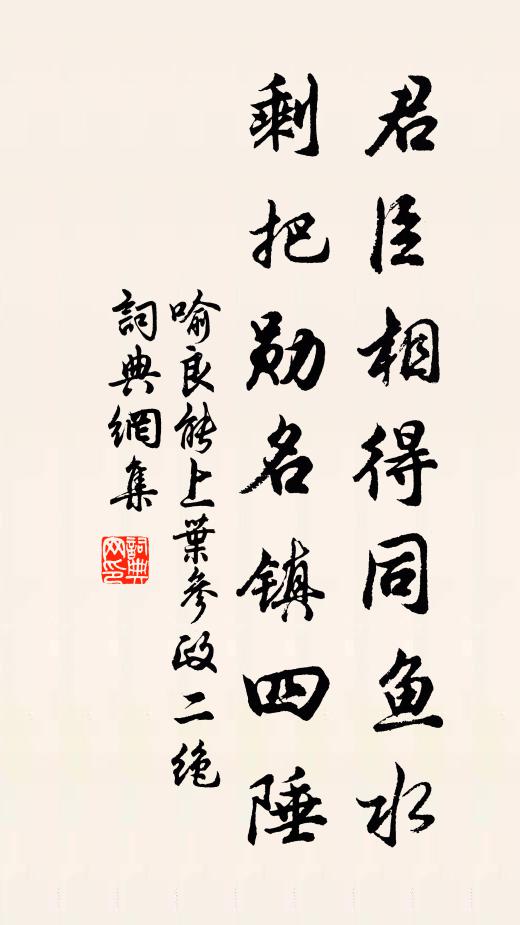 君臣相得同鱼水
剩把勋名镇四陲
喻良能上葉參政二绝
詞典網集
詞典网印